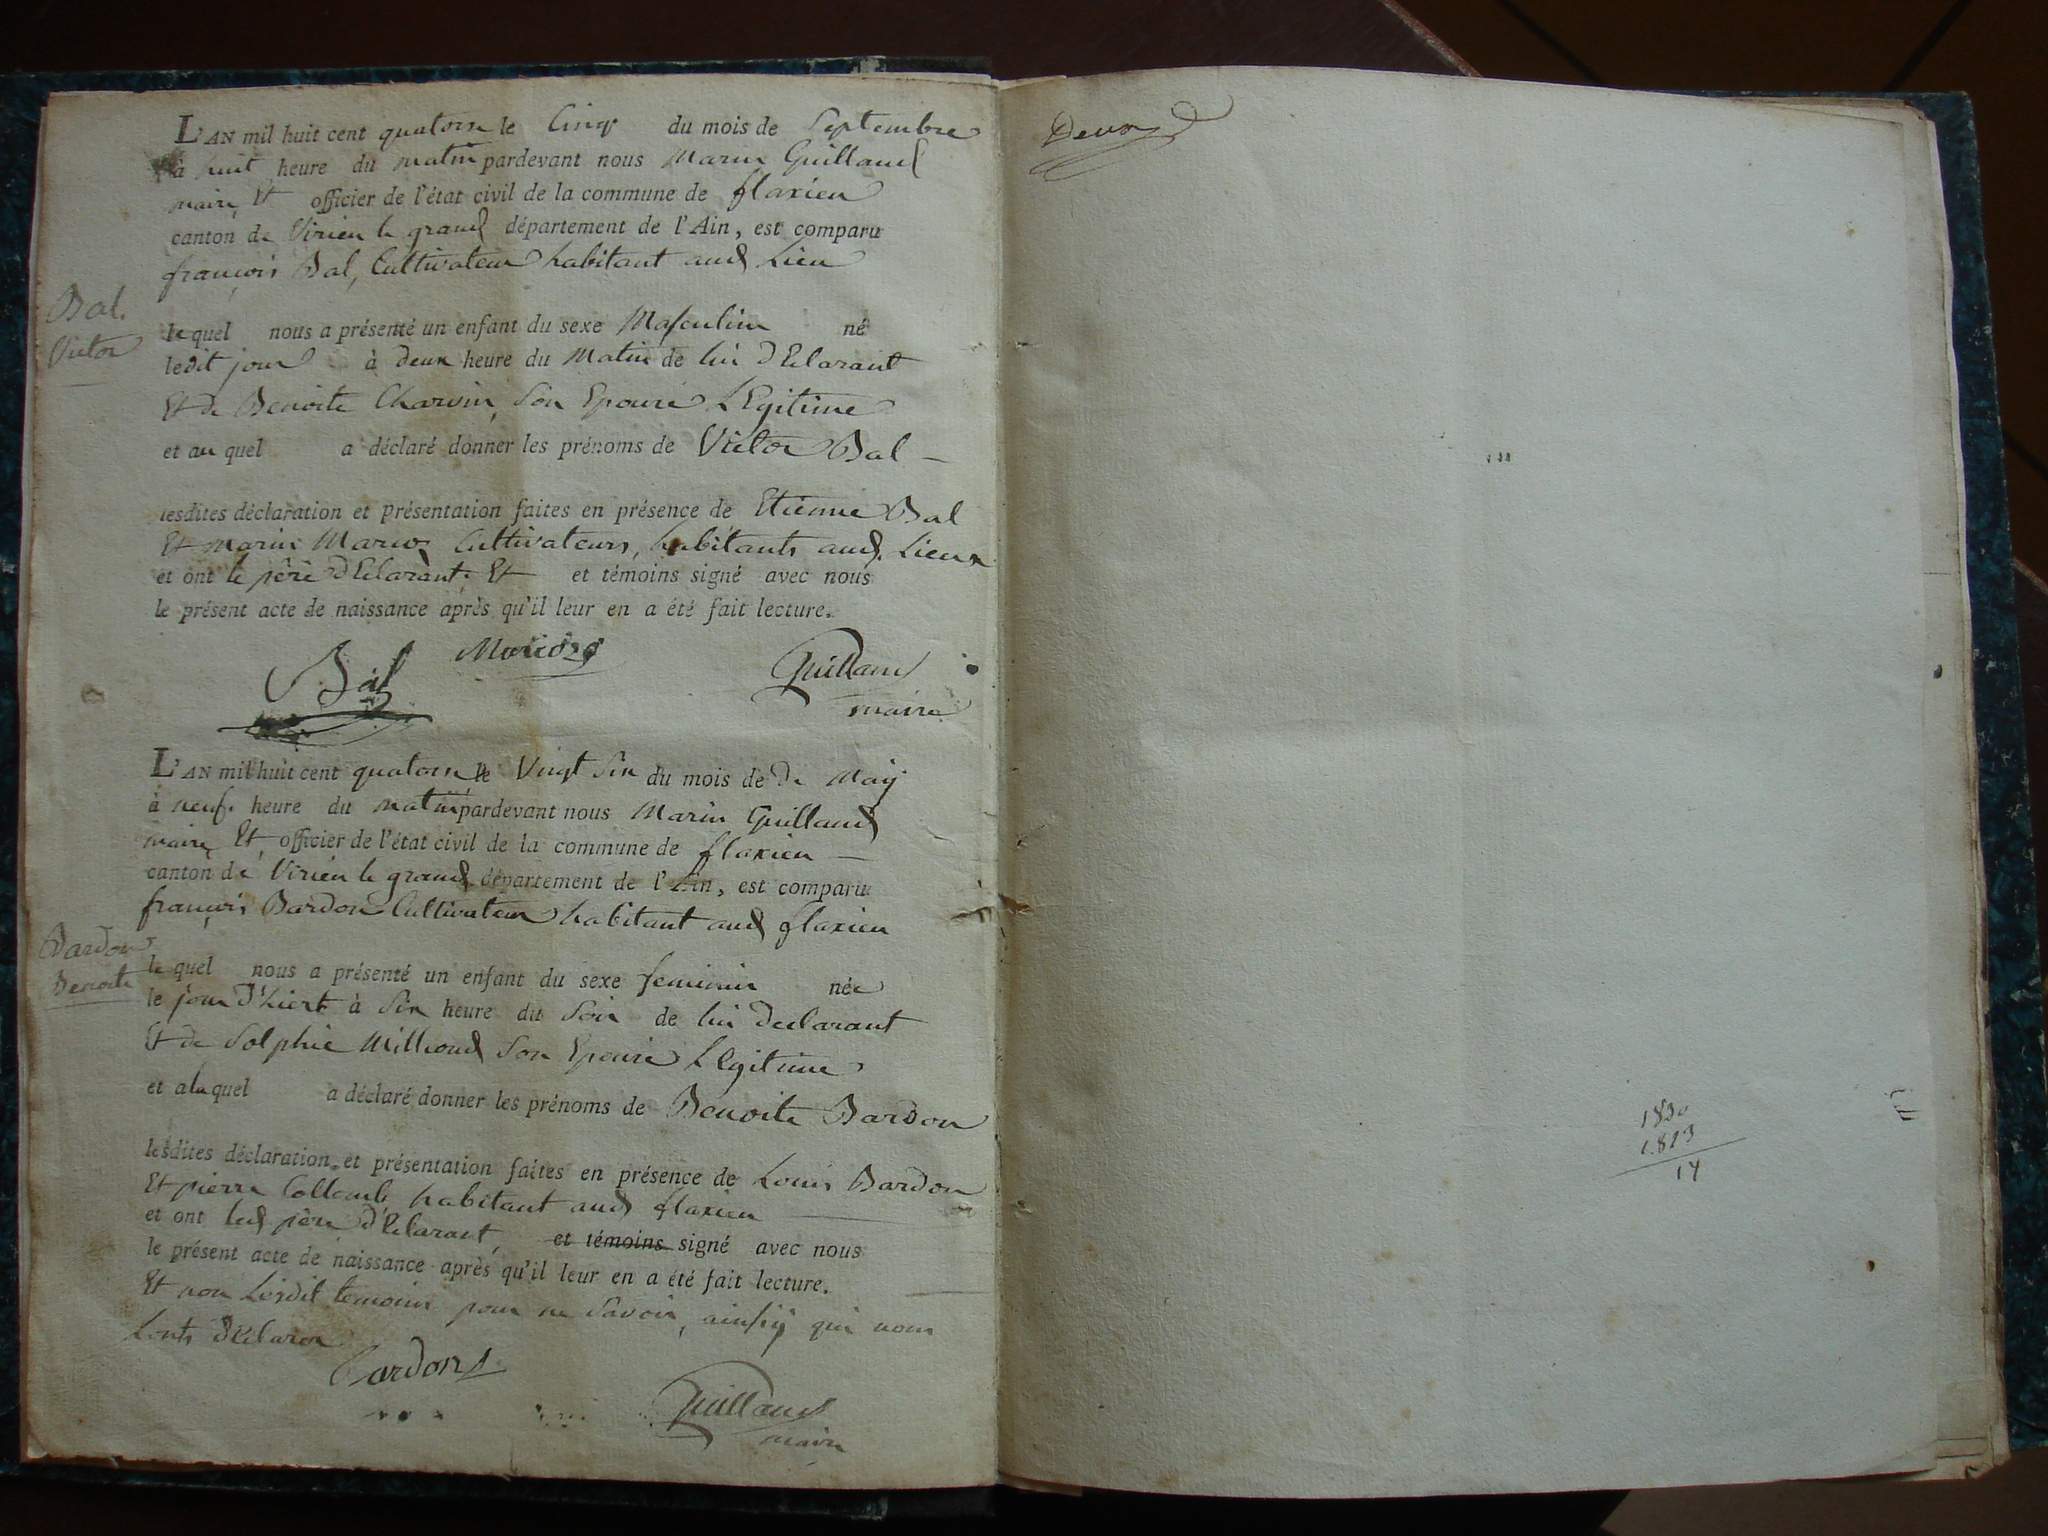 L'AN mil huit cent quatorze le Cinq du mois de Septembre
à huit heure du matin pardevant nous Marin Guilland
maire Et officier de l'état civil de la commune de flaxieu
canton de Virieu le grand département de l'Ain, est comparu
françois Bal, Cultivateur habitant aud Lieu
Bal.
Victor
le quel nous a présenté un enfant du sexe Masculin né
ledit jour à deux heure du Matin de lui dEclarant
Et de Benoite Charvin Son Epouse LEgitime
et au quel a déclaré donner les prénoms de Victor Bal
lesdites déclaration et présentation faites en présence de Etienne Bal
Et marin Cultivateurs, habitants aud. Lieux
et ont le père dEclarant. Et et témoins signé avec nous
le présent acte de naissance après qu'il leur en a été fait lecture.
Bal
Guilland
maire
L'AN mil huit cent quatorze le Vingt Six du mois de De May
à neuf. heure du matin pardevant nous Marin Guilland
maire Et officier de l'état civil de la commune de flaxieu
canton de Virieu le grand département de l'Ain, est comparu
françois Bardon Cultivateur habitant aud flaxieu
Bardon
Benoite
le quel nous a présenté un enfant du sexe feminin née
le jour d'hiert à Six heure du Soir de lui declarant
Et de Solphie Milliond Son Epouse LEgitime
et a la quel a déclaré donner les prénoms de Benoite Bardon
lesdites déclaration et présentation faites en présence de Louis Bardon
Et pierre Collomb habitant aud flaxieu
et ont led père d'Eclarant et témoins signé avec nous
le présent acte de naissance après qu'il leur en a été fait lecture.
Et non Lesdit temoins pour ne Savoir, ainsÿ qui nous
Lonts dEclarer
Bardon
Guilland
maire
Deux
1830
1813
14